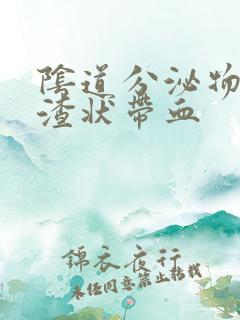 陰道分泌物
渣状帶血
錦衣夜行
未经同意禁止转载